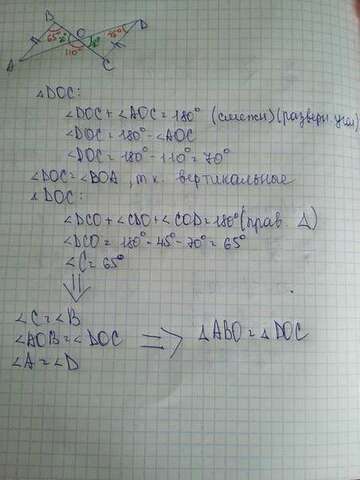 B
D
65°
70°
O
70°
45°
A
110°
C
△DOC:
∠DOC+∠AOC=180° (смежн)(развёрн. угол)
∠DOC=180°-∠AOC
∠DOC=180°-110°=70°
∠DOC=∠BOA, т.к. вертикальные
△DOC:
∠DCO+∠CDO+∠COD=180° (прав. △)
∠DCO=180°-45°-70°=65°
∠C=65°
⇓
∠C=∠B
∠AOB=∠DOC ⇒ △ABO=△DOC
∠A=∠D